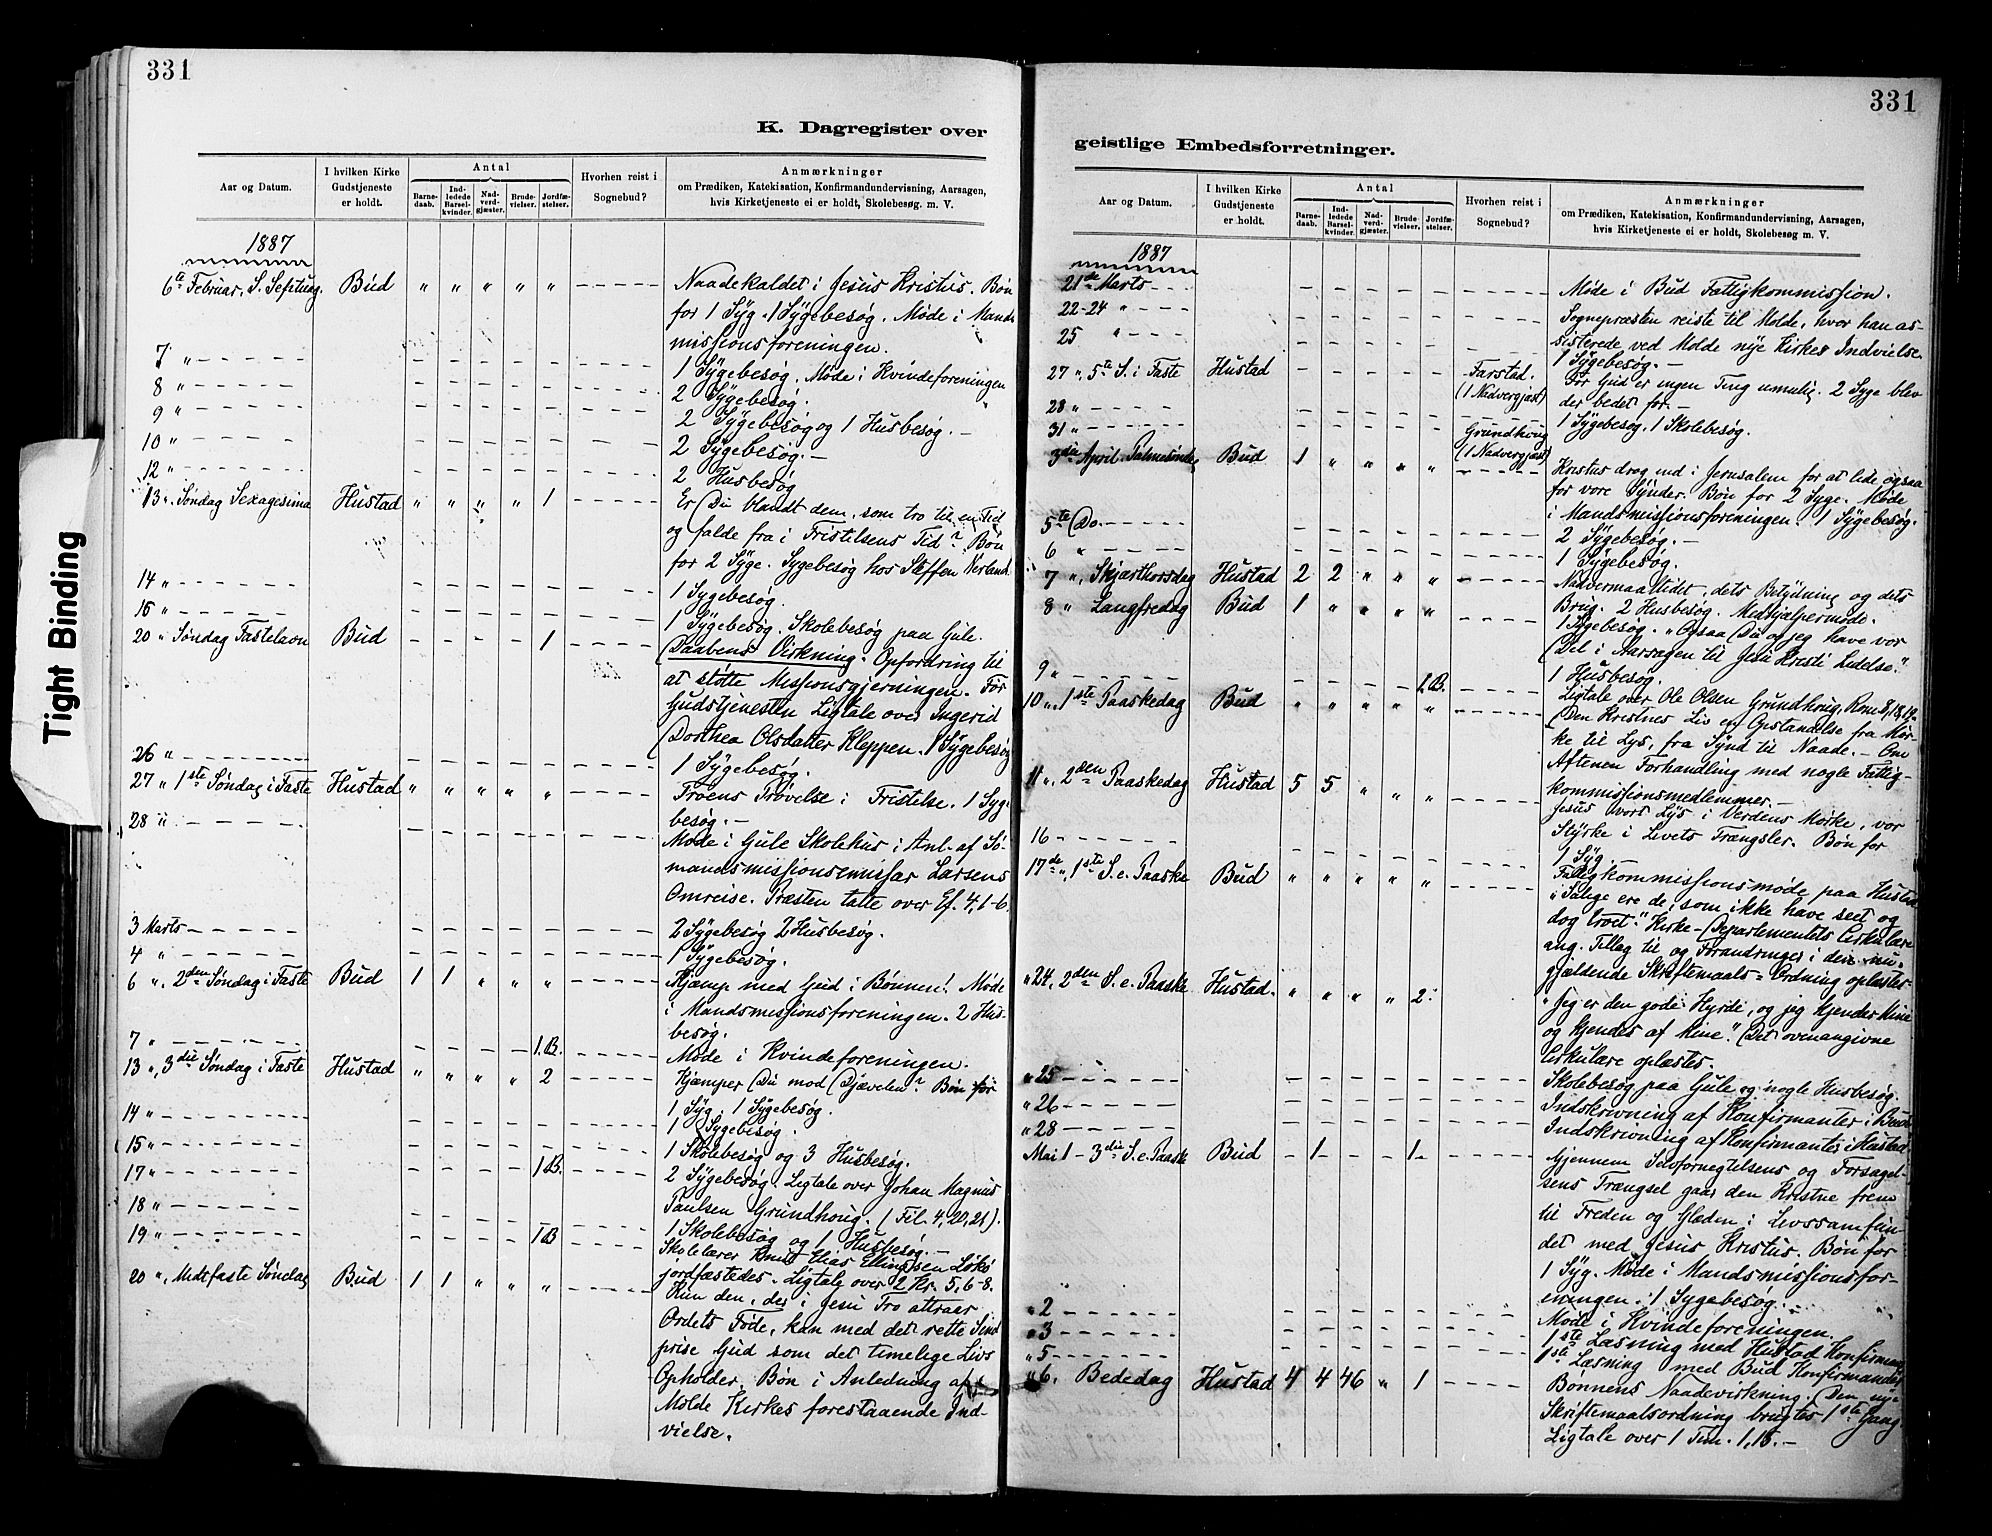 331
K. Dagregister over
Aar og Datum.
I hvilken Kirke Gudstjeneste er holdt.
Antal
Barne-daab.
Ind-ledede Barsel-kvinder.
Nad-verd-gjæster.
Brude-vielser.
Jordfæ-stelser.
Hvorhen reist i Sognebud?
Anmærkninger
om Prædiken, Katekisation, Konfirmandundervisning, Aarsagen,
hvis Kirketjeneste ei er holdt, Skolebesøg. m. V.
1887
6te Februar, S. Septuag. Bud " " " " " Naadekaldet i Jesus Kristus. Bøn
for 1 Syg. 1 Sygebesøg. Møde i Mands
missionsforeningen.
7 " 1 Sygebesøg. Møde i Kvindeforeningen
8 " 2 Sygebesøg.
9 " 2 Sygebesøg og 1 Husbesøg. –
10 " 2 Sygebesøg. –
12 " 2 Husbesøg
13 ". Søndag Sexagesima Hustad " " " " 1 Er Du blandt dem, som tro til en Tid
og falde fra i Fristelsens Tid? Bøn
for 2 Syge. Sygebesøg hos Steffen Verland
14 " 1 Sygebesøg.
15 " 1 Sygebesøg. Skolebesøg paa Gule.
20 " Søndag Fastelavn Bud 1 Daabens Virkning. Opfordring til
at støtte Missionsgjerningen. Før
Gudstjenesten Ligtale over Ingerid
Dorthea Olsdatter Kleppen. 1 Sygebesøg
26 " 1 Sygebesøg.
27 " 1ste Søndag i Faste Hustad " " " " " Troens Prøvelse i Fristelse. 1 Syge-
besøg. –
28 " Møde i Gule Skolehus i Anl. af Sø-
mandsmissionsemissær Larsens
Omreise. Præsten talte over Ef. 4, 1-6.
3 Marts 2 Sygebesøg 2 Husbesøg.
4 " 1 Sygebesøg.
6 ". 2den Søndag i Faste Bud 1 1 " " " Kjæmp med Gud i Bønnen! Møde
i Mandsmissionsforeningen. 2 Hus-
besøg.
7 " 1. B. Møde i Kvindeforeningen.
13 ", 3die Søndag i Faste Hustad " " " " 2 Kjæmper Du mod Djævelen? Bøn for
1 Syg. 1 Sygebesøg.
14 " 1 Sygebesøg.
15 " 1 Skolebesøg og 3 Husbesøg.
17 " 1 B. 2 Sygebesøg. Ligtale over Johan Magnus
Paulsen Grundhoug. (Fil. 4, 20, 21).
18 " 1 Skolebesøg og 1 Husbesøg. –
19 " 1 B Skolelærer Knud Elias Ellingsen Løkø
jordfæstedes. Ligtale over 2 Kr. 5, 6-8.
20 ", Midtfaste Søndag Bud 1 1 " " " Kun den, der i Jesu Tro attraar
Ordets Føde, kan med det rette Sind
prise Gud som det timelige Livs
Opholder. Bøn i Anledning af
Molde Kirkes forestaaende Ind-
vielse.
331
geistlige Embedsforretninger.
Aar og Datum.
I hvilken Kirke Gudstjeneste er holdt.
Antal
Barne-daab.
Ind-ledede Barsel-kvinder.
Nad-verd-gjæster.
Brude-vielser.
Jordfæ-stelser.
Hvorhen reist i Sognebud?
Anmærkninger
om Prædiken, Katekisation, Konfirmandundervisning, Aarsagen,
hvis Kirketjeneste ei er holdt, Skolebesøg m. V.
1887
21de Marts Møde i Bud Fattigkommission.
22-24 " Sognepræsten reiste til Molde, hvor han as-
sisterede ved Molde nye Kirkes Indvielse.
25 " 1 Sygebesøg. –
27 ", 5te S. i Faste Hustad Farstad. For Gud er ingen Ting umulig. 2 Syge blev
der bedet for. –
28 " (1 Nadvergjæst)
31 " Grundhoug 1 Sygebesøg. 1 Skolebesøg.
(1 Nadvergjæst)
3die April. Palmesøndag Bud 1 " " " " Kristus drog ind i Jerusalem for at lide ogsaa
for vore Synder. Bøn for 2 Syge. Møde
i Mandsmissionsforeningen. 1 Sygebesøg.
5te Do. 2 Sygebesøg. –
6 " 1 Sygebesøg.
7 ", Skjærthorsdag Hustad 2 2 " " " Nadvermaaltidet, dets Betydning og dets
Brug. 2 Husbesøg. Medhjælpermøde.
8 " Langfredag Bud 1 " " " " 1 Sygebesøg. "Ogsaa Du og jeg have vor
Del i Aarsagen til Jesu Kristi Lidelse."
9 " 1 B. 1 Husbesøg.
Ligtale over Ole Olsen Grundhoug. Rom. 8, 18, 19.
10 ", 1ste Paaskedag Bud " " " " " Den Kristnes Liv en Opstandelse fra Mør-
ke til Lys, fra Synd til Naade. – Om
Aftenen Forhandling med nogle Fattig-
kommissionsmedlemmer. –
11 ", 2den Paaskedag Hustad 5 5 " " " Jesus vort Lys i Verdens Mørke, vor
Styrke i Livets Trængsler. Bøn for
1 Syg. –
16 Fattigkommissionsmøde paa Hustad
17de ", 1ste S. e. Paaske Bud " " " " " "Salige ere de, som ikke have seet og
dog troet." Kirke-Departementets Cirkulære
ang. Tillæg til og Forandringer i den nu-
gjældende Skriftemaals-Ordning oplæstes.
" 24, 2den S. e. Paaske Hustad. " " " " 2. "Jeg er den gode Hyrde, og jeg kjender Mine
og kjendes af Mine." Det ovenangivne
Cirkulære oplæstes.
" 25 Skolebesøg paa Gule og nogle Husbesøg.
" 26 Indskrivning af Konfirmanter i Bud.
" 28 Indskrivning af Konfirmanter i Hustad
Mai 1 – 3die S. e. Paaske Bud 1 1 Gjennem Selvfornegtelsens og Forsagel-
sens Trængsel gaar den Kristne frem
til Freden og Glæden i Livssamfun-
det med Jesus Kristus. Bøn for
1 Syg. Møde i Mandsmissionsfor-
eningen. 1 Sygebesøg. –
" 2 Møde i Kvindeforeningen.
" 3 1ste Læsning med Hustad Konfirman
" 5 1ste Læsning med Bud Konfirmander
" 6. Bededag Hustad 4 4 46 " 1 Bønnens Naadevirkning. Den nye
Skriftemaalsordning brugtes 1ste Gang
Ligtale over 1 Tim. 1, 15. –
Tight Binding